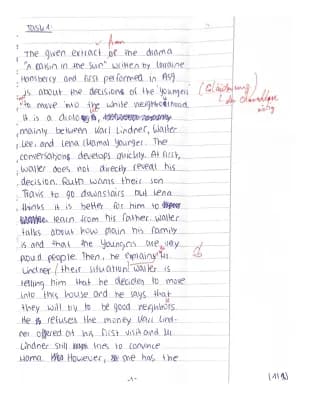 Task 1:
from
The given extract of the drama
"A raisin in the sun" written by Loraine
Hansberry and first performed in 1959
is about the decisions of the Youngers
to move into the white neighborhood.
It is a dialog,
mainly between Karl Lindner, Walter
Lee, and Lena (Mama) Younger. The
conversations develops quickly. At first,
Walter does not directly reveal his
decision. Ruth wants their son
Travis to go downstairs but Lena
thinks it is better for him to
learn from his father. Walter
talks about how plain his family
is and that the Youngers are very
proud people. Then, he explains Mr
Lindner (their situation) Walter is
telling him that he decides to move
into this house and he says that
they will try to be good neighbors.
He refuses the money Karl Lind-
ner offered at his first visit and
Lindner still tries to convince
Mama. However, she has the
-1-